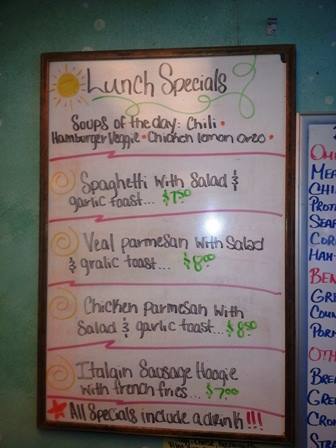 Lunch Specials
Soups of the day: Chili •
Hamburger Veggie • Chicken lemon orzo •
Spaghetti with Salad &
garlic toast... $7.50
Veal parmesan with Salad
& gralic toast... $8.00
Chicken parmesan with
Salad & garlic toast... $8.50
Italain Sausage Hoogie
with french fries... $7.00
All Specials include a drink!!!